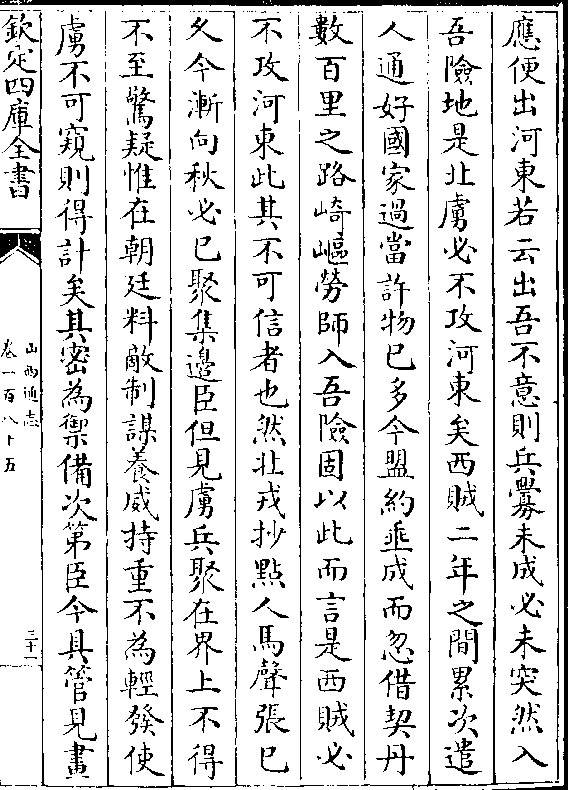 應便出河東若云出吾不意則兵釁未成必未突然入
吾險地是北虜必不攻河東矣西賊二年之間累次遣
人通好國家過當許物已多今盟約垂成而忽借契丹
數百里之路崎嶇勞師入吾險固以此而言是西賊必
不攻河東此其不可信者也然北戎抄㸃人馬聲張已
久今漸向秋必已聚集邊臣但見虜兵聚在界上不得
不至驚疑惟在朝廷料敵制謀養威持重不為輕發使
虜不可窺則得計矣其密為禦備次第臣今具管見畫
欽定四庫全書
山西通志
卷一百八十五
三十一